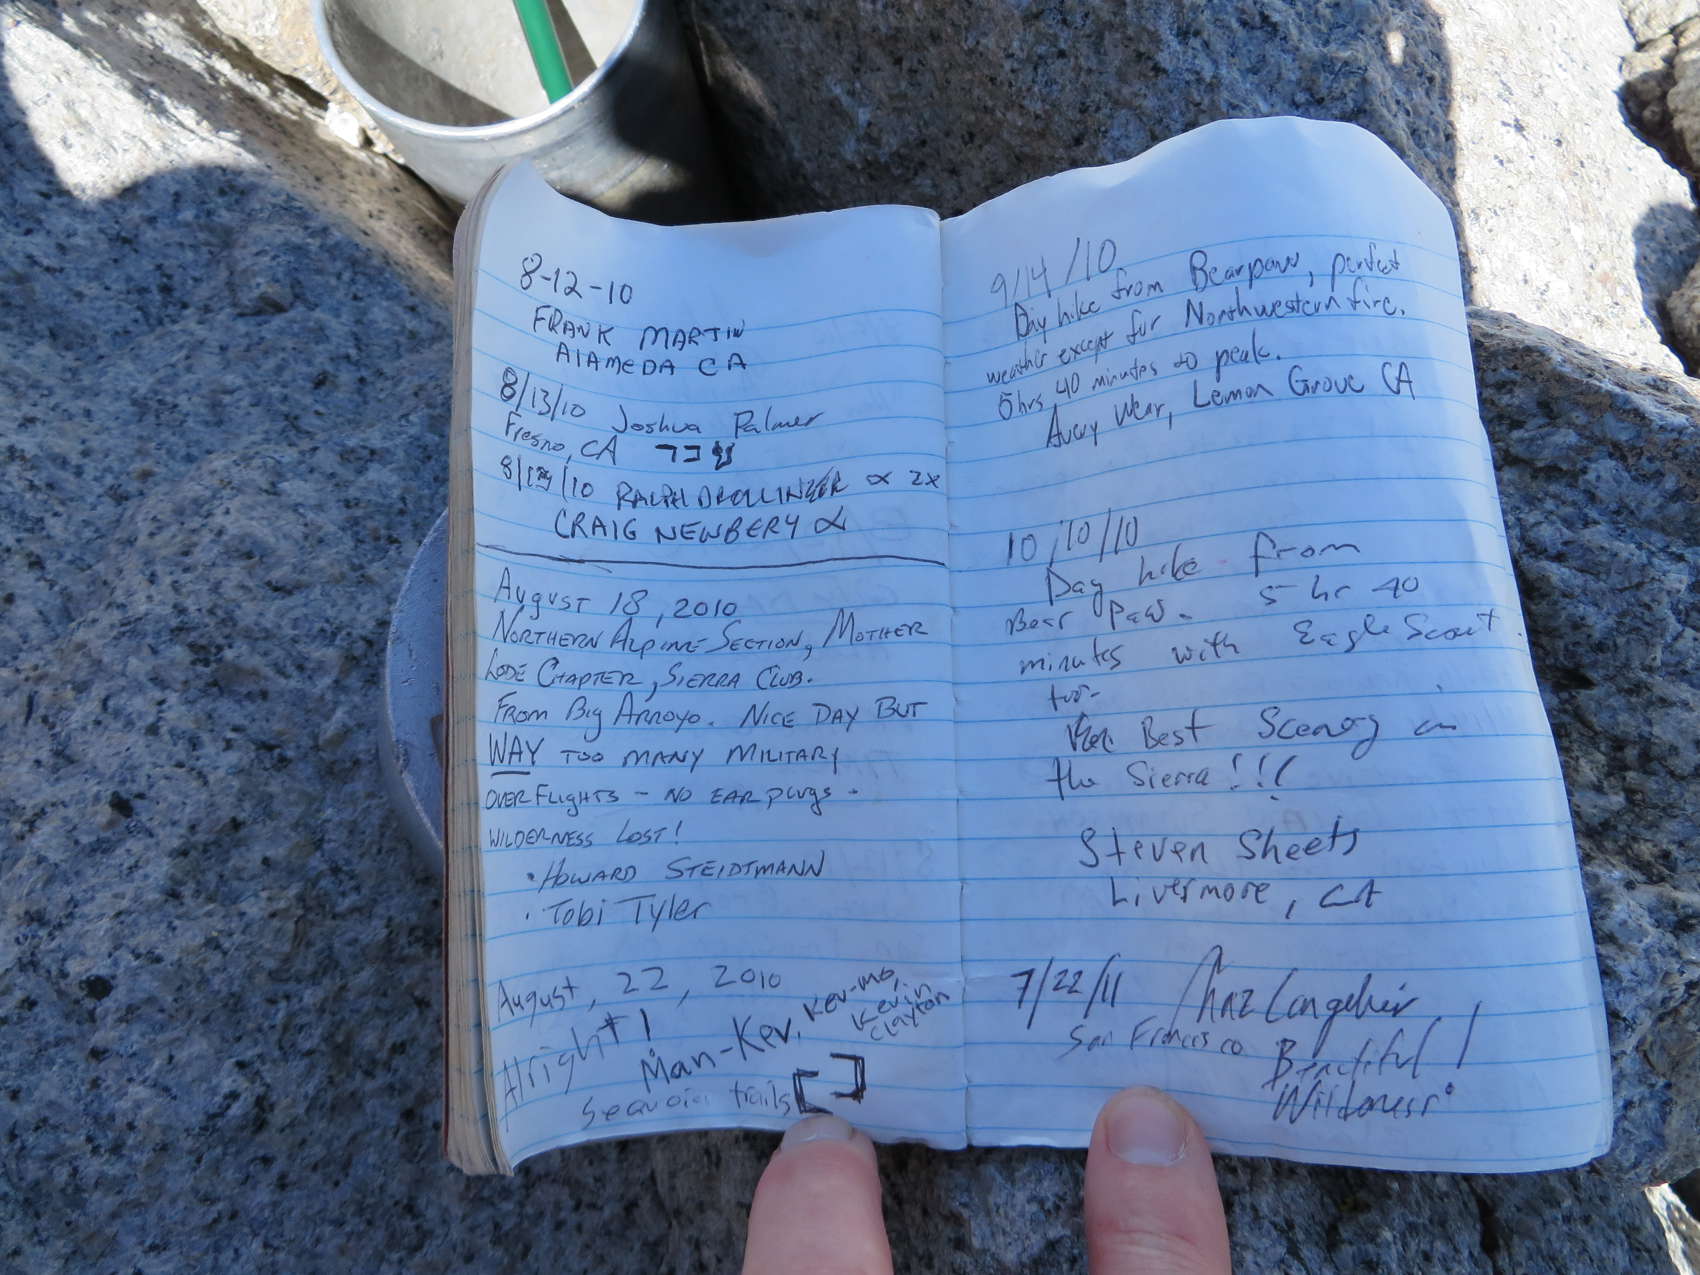 8-12-10
FRANK MARTIN
ALAMEDA CA
8/13/10 Joshua Palmer
Fresno, CA
8/ /10 RALPH DROLLINGER ∝ 2x
CRAIG NEWBERY ∝
August 18, 2010
Northern Alpine Section, Mother
Lode Chapter, Sierra Club.
From Big Arroyo. Nice Day But
WAY too many military
overflights - no ear plugs.
wilderness lost!
• Howard Steidtmann
• Tobi Tyler
August, 22, 2010
Alright!
Man-Kev, Kev-mo,
Kevin
Clayton
Sequoia trails
9/14/10
Day hike from Bearpaw, perfect
weather except for Northwestern fire.
5hrs 40 minutes to peak.
Avery Wear, Lemon Grove CA
10/10/10
Day hike from
Bear Paw. 5 hr 40
minutes with Eagle Scout
too.
Best Scenery in
the Sierra!!!
Steven Sheets
Livermore, CA
7/22/11
San Francisco
Beautiful!
Wilderness